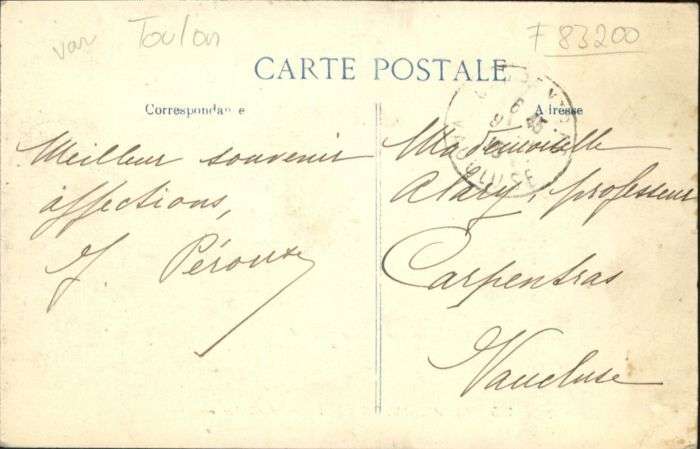 var Toulon
F 83200
CARTE POSTALE
Correspondance
Adresse
Meilleur souvenir
affections,
Y. Pérouse
Mademoiselle
Alary, professeur
Carpentras
Vaucluse